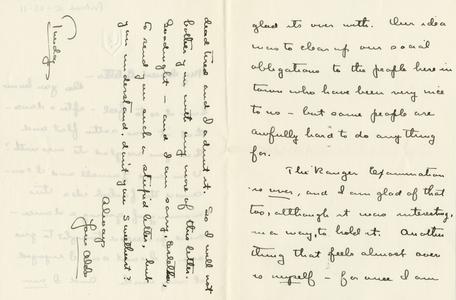 glad its over with. Our idea
was to clean up our social
obligations to the people here in
town who have been very nice
to us – but some people are
awfully hard to do any thing
for.
The Ranger Examination
is over, and I am glad of that
too, although it was interesting,
in a way, to hold it. Another
thing that feels almost over
is myself – for once I am
dead tired and I admit it. So I will not
bother you with any more of this letter.
Goodnight – and I am sorry,
to send you such a stupid letter, but
you understand, don't you
Always
Tuesday